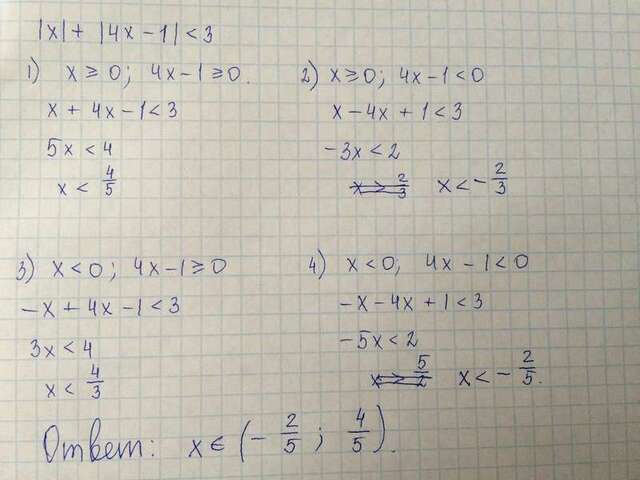 |x| + |4x-1| < 3
1) x ≥ 0; 4x-1 ≥ 0.
x + 4x - 1 < 3
5x < 4
x < 4/5
2) x ≥ 0; 4x-1 < 0
x - 4x + 1 < 3
-3x < 2
x > 2/3 x < - 2/3
3) x < 0; 4x-1 ≥ 0
-x + 4x - 1 < 3
3x < 4
x < 4/3
4) x < 0; 4x - 1 < 0
-x - 4x + 1 < 3
-5x < 2
x > 5/2 x < - 2/5.
Ответ: x ∈ (- 2/5; 4/5).